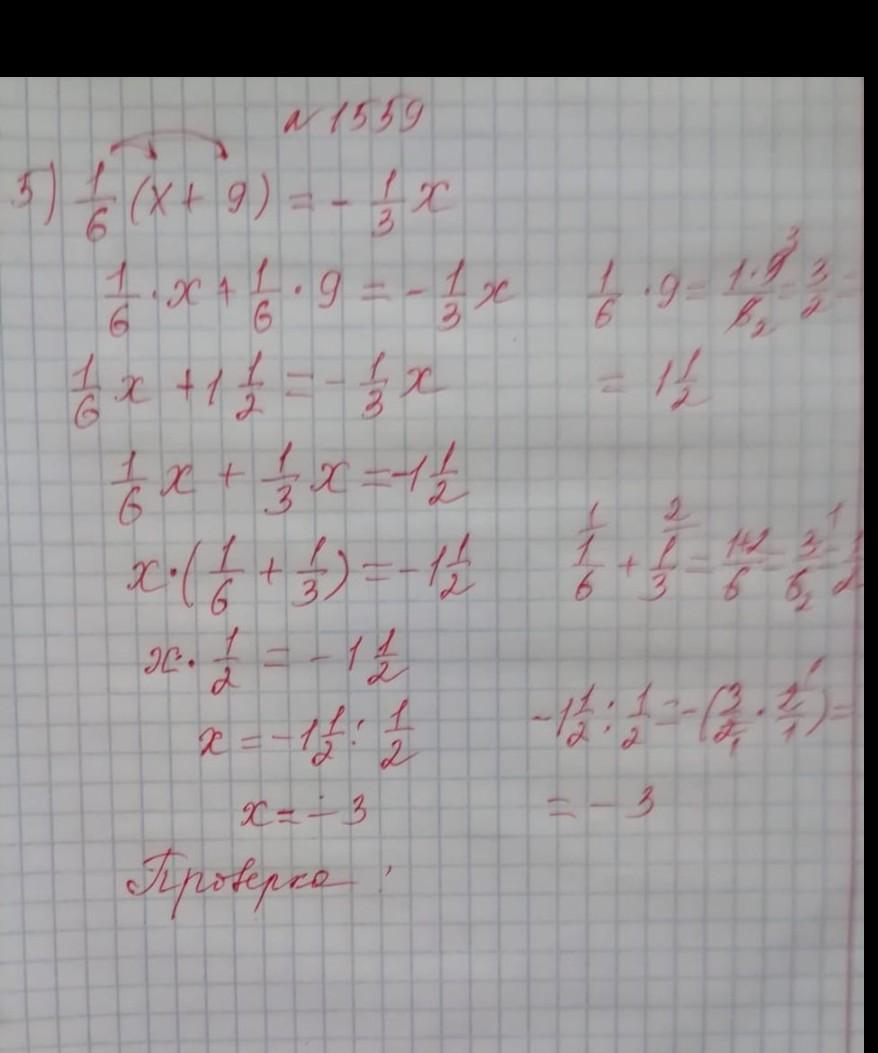 N 1559
5) 1/6 (x + 9) = - 1/3 x
1/6 · x + 1/6 · 9 = - 1/3 x    1/6 · 9 = 1·9³/6₂ = 3/2 =
1/6 x + 1 1/2 = - 1/3 x    = 1 1/2
1/6 x + 1/3 x = -1 1/2
x·(1/6 + 1/3) = -1 1/2    ¹/ 1/6 + ²/ 1/3 = 1+2/6 = 3¹/6₂ = 1/2
x· 1/2 = - 1 1/2
x = -1 1/2 : 1/2    -1 1/2 : 1/2 = -(3/2₁ · 2¹/1) =
x = - 3    = - 3
Проверка :